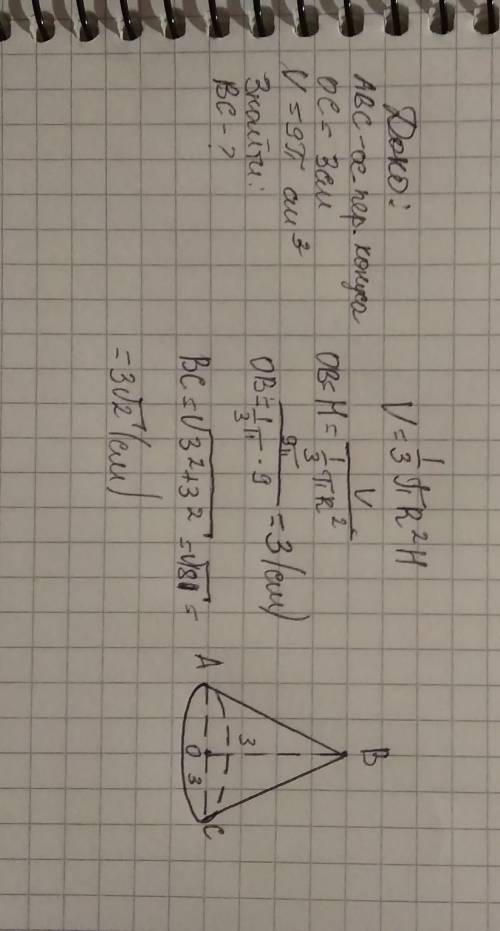 Дано:
ABC - ос. пер. конуса
OC = 3 см
V = 9π см3
Знайти:
BC - ?
V = 1/3 πR²H
OB = H = V / (1/3 πR²)
OB = 9π / (1/3 π · 9) = 3 (см)
BC = √3²+3² = √18 =
= 3√2 (см)
B
3
A O 3 C